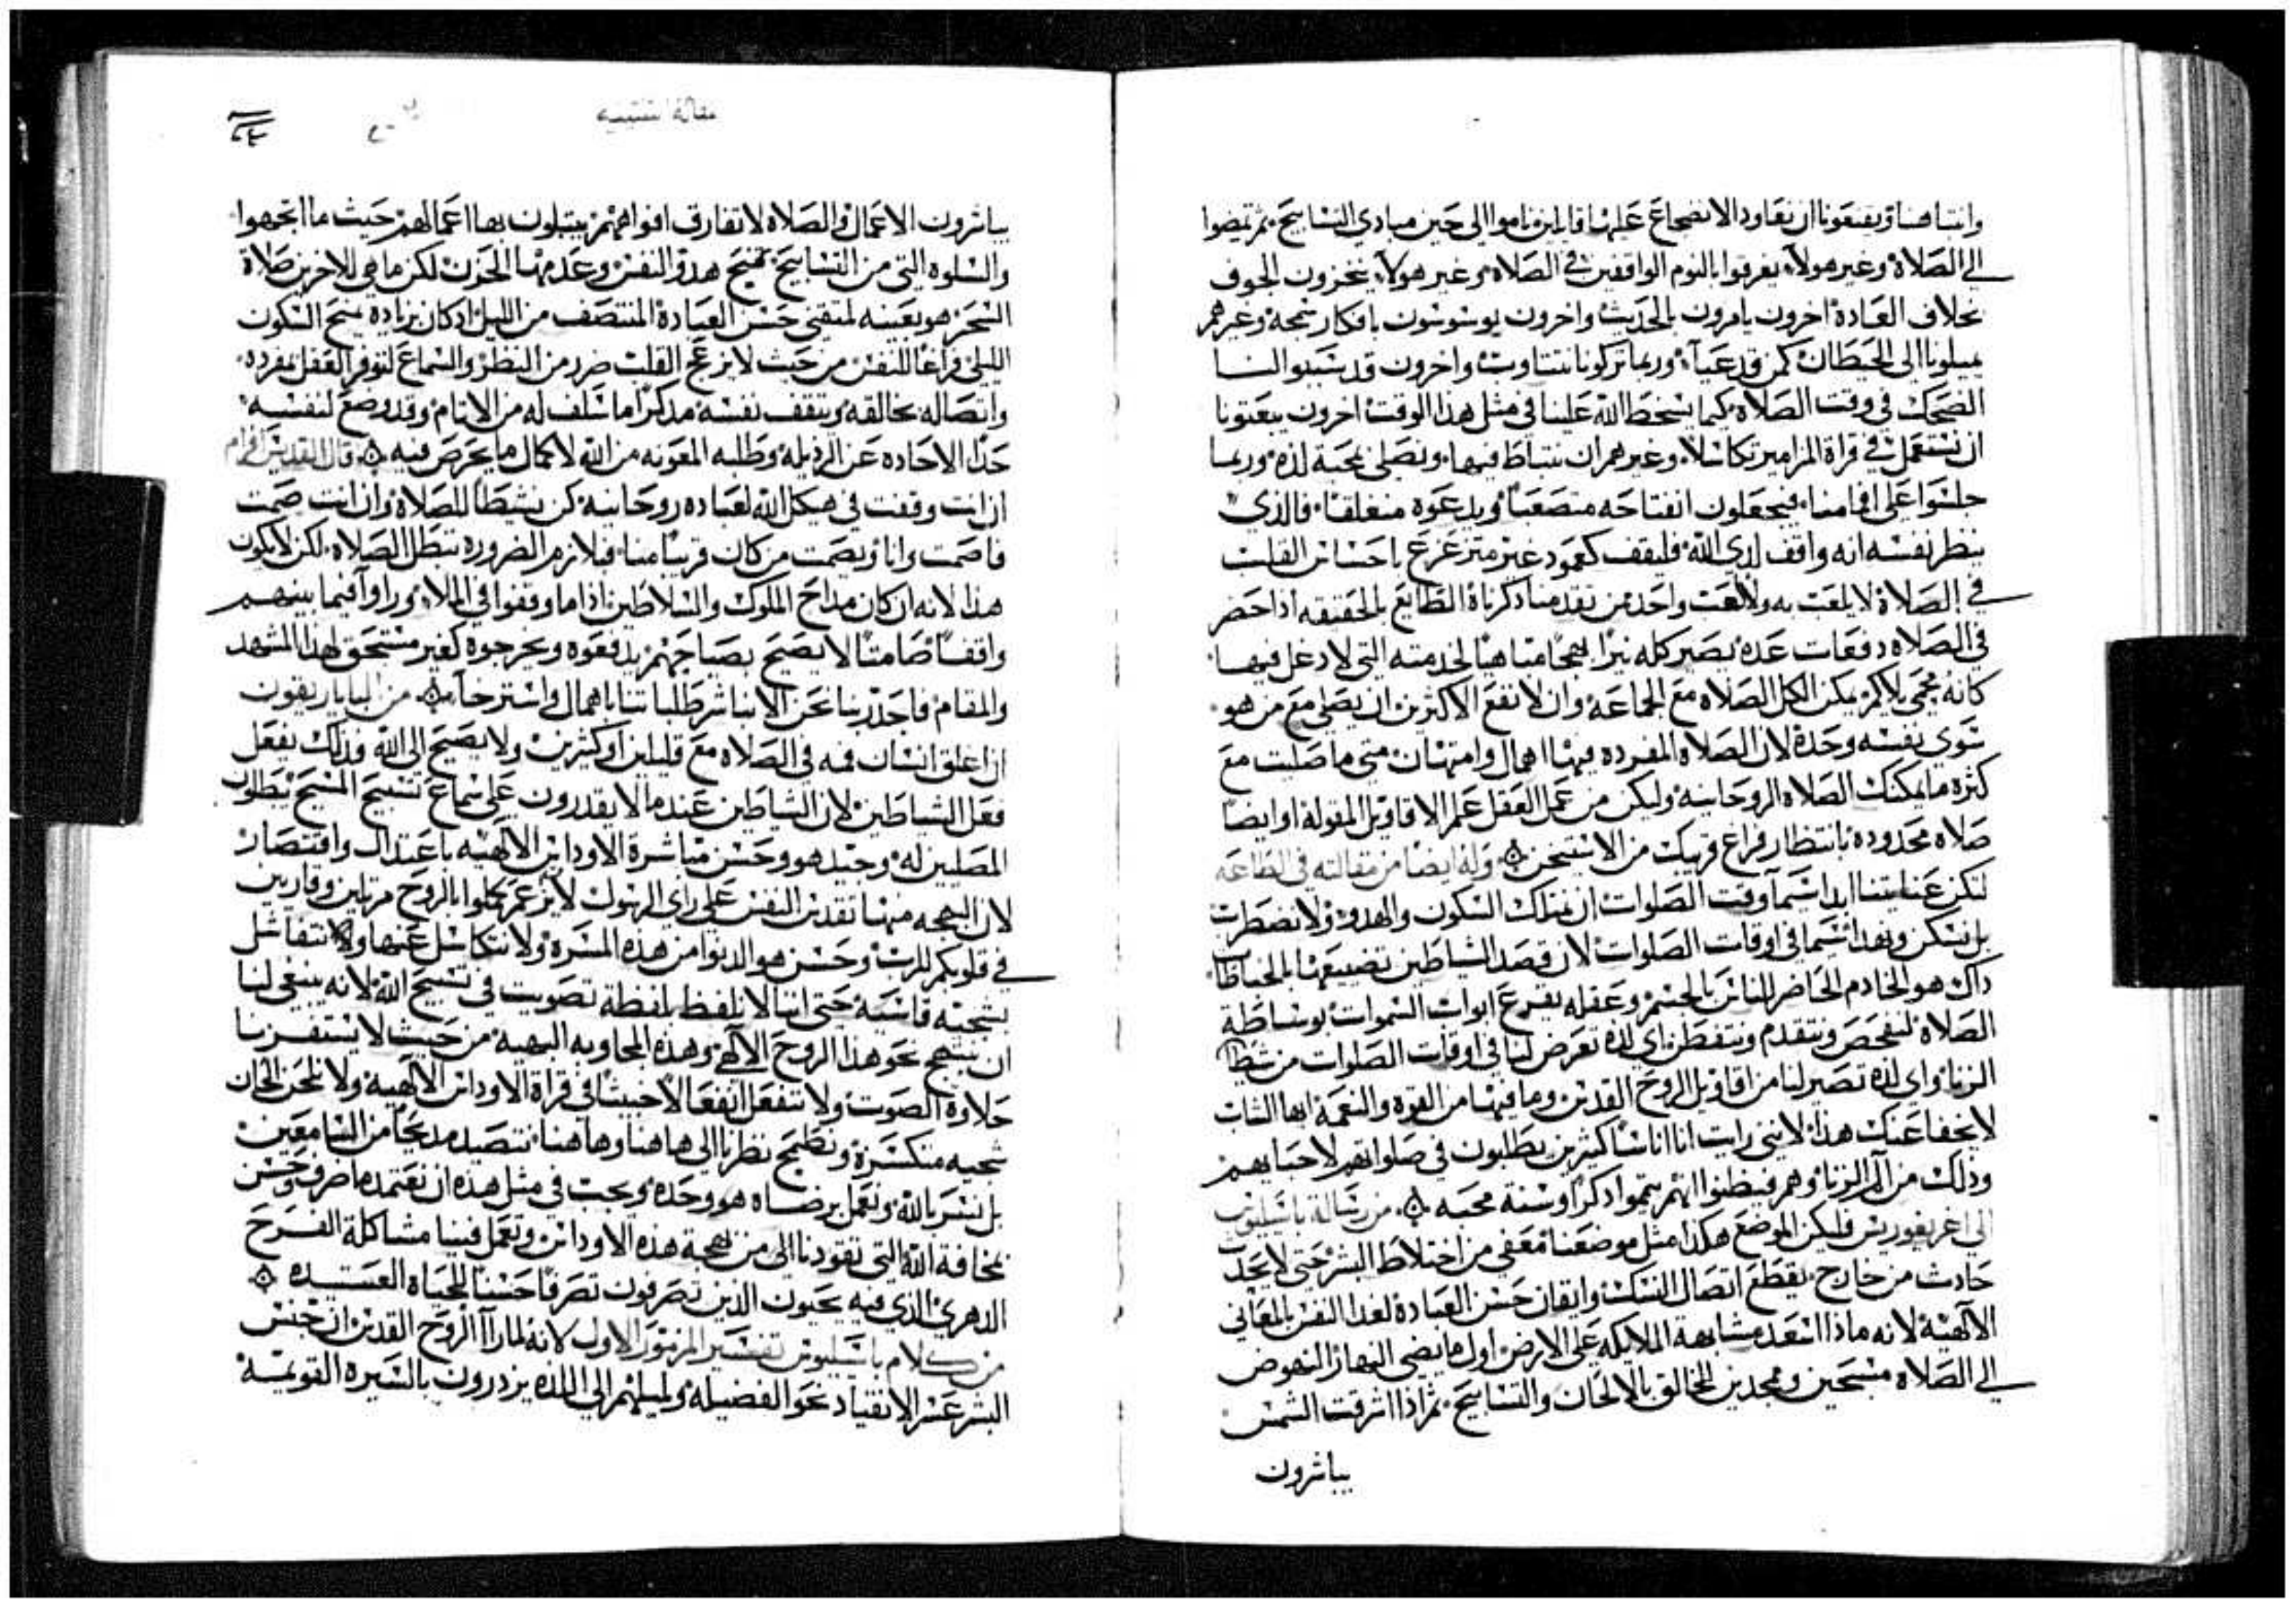 وانتباهنا ويقنعونا ان نعاود الانضجاع علينا قايلين ناموا الى حين مبادي التسابيح ثم تمضوا
الى الصلاة وغير هولاء يغرقوا بالنوم الواقفين في الصلاه وغير هولاء ينخزون الجوف
بخلاف العادة اخرون يامرون بالحديث واخرون يوسوسون بافكار سمجه وغيرهم
يميلونا الى الحيطان كمن قد عيآء وربما تركونا نتتاوب واخرون قد سببوا لنا
الضحك في وقت الصلاه كيما يسخط الله علينا في مثل هذا الوقت اخرون يبعتونا
ان نستعمل في قراة المزامير تكاسلا وغيرهم ان نتباطا فيها ونصلي بمحبة لذه وربما
جلسوا على افمامنا فيجعلون انفتاحه متصعبا ويدعوه منغلقا فالذي
ينظر نفسه انه واقف لدى الله فليقف كعمود غير متزعزع باحساس القلب
في الصلاة لا يلعب به ولا لعب واحد من تقدمنا ذكرناة الطايع بالحقيقه اذا حضر
في الصلاه دفعات عده يصير كله نيرا بهجا متاهبا لخدمته التي لا دغل فيها
كانه محمي بلاكم يمكن الكل الصلاه مع الجماعه وان لا نفع الاكثرين ان يصلي مع من هو
شوي نفسه وحدة لان الصلاه المفرده فيها اهمال وامتهان متى ما صليت مع
كثره ما يمكنك الصلاه الروحانيه وليكن من عمل العقل عمل الاقاويل المقوله او ايضا
صلاه محدوده بانتظار فراغ قريبك من الاستيخن ۞ وله ايضا من مقالته في الطاعه
لتكن عنايتنا ابدا سيما وقت الصلوات ان نمتلك السكون والهدو ولا نضطرب
بل نسكن ونهدا سيما في اوقات الصلوات لان قصد الشياطين تضييعها بالخباطا
ذاك هو الخادم الحاضر للناس بالجسم وعقله يقرع ابواب السموات بوساطة
الصلاة لنفحص ونتقدم ونتفطن اي لذه تعرض لنا في اوقات الصلوات من شيطان
الزنا واي لذه تصير لنا من اقاويل الروح القدس وما فيها من القوه والنعمة ايها الشاب
لا يخفا عنك هذا لانني رايت انا اناسا كثيرين يطلبون في صلواتهم لاحبايهم
وذلك من الم الزنا وهم فيظنوا انهم يتموا ذكرا وسنة محبه ۞ من رسالة باسيليوس
الى اغريغوريس فليكن الموضع هكذا مثل موضعنا معفى من اختلاط البشر حتى لا يحد
حادث من خارج يقطع اتصال النسك وايقان حسن العبادة لغدا النفس بالمعاني
الالهيه لانه ماذا اسعد مشابهة الملايكه على الارض اول ما يضي النهار النهوض
الى الصلاه مسبحين وممجدين للخالق بالالحان والتسابيح ثم اذا اشرقت الشمس
يباشرون
مقالة
يباشرون الاعمال والصلاة لا تفارق افواههم يتبلون بها اعمالهم حيث ما اتجهوا
والسلوه التي من التسابيح تمنح هدو النفس وعدمها الحزن لكن ما هي للاخرين صلاة
السحر هو بعينه لمتقني حسن العبادة المنتصف من الليل اذ كان بزياده يمنح السكون
الليلي فراغا للنفس من حيث لا يزعج القلب ضرر من النظر والسماع لتوفر العقل بمفرده
واتصاله بخالقه ويثقف نفسه مذكرا ما سلف له من الاتام وقد وضع لنفسه
حدا لاحاده عن الرذيله وطلبه المعونه من الله لاكمال ما يحرص فيه ۞ قال القديس افرام
ان انت وقفت في هيكل الله لعباده روحانيه كن نشيطا للصلاة وان انت صمت
فاصمت وانا ويصمت من كان قريبا منا فبلازم الضروره تبطل الصلاه لكن لا يكون
هذا لانه ان كان مداح الملوك والسلاطين اذا ما وقفوا في الملاء وراوا فيما بينهم
واقفا صامتا لا يصيح بصياحهم يدفعوه ويخرجوه كغير مستحق لهذا المشهد
والمقام فاحدرنا نحن الا نباشر طلباتنا باهمال واسترخاء ۞ من البابا ريقون
ان اغلق انسان فمه في الصلاه مع قليلين او كثيرين ولا يصيح الى الله فذلك يفعل
فعل الشياطين لان الشياطين عندما لا يقدرون على سماع تسبيح المسيح يبطلون
المصلين له وجيد هو وحسن مباشرة الاوداس الالهيه باعتدال واقتصار
لان البهجه منها تقدس النفس على راي الرسول لانزعم كملوا بالروح مرتلين وقارين
في قلوبكم للرب وحسن هو الدنو من هذه المسره ولا نتكاسل عنها ولا نتفاشل
بشجيه قاسيه حتى اننا لا نلفظ بلفظة تصويت في تسبيح الله لانه ينبغي لنا
ان نبتهج نحو هذا الروح الالهي وهذه المجاوبه البهيه من حيث لا يستفزنا
حلاوة الصوت ولا ننفعل انفعالا خبيثا في قراة الاوداس الالهية ولا نلحن الحان
شجيه متكسرة ونطمح نظرنا الى هاهنا وهاهنا نتصيد مديحا من السامعين
بل نسر بالله ونعمل برضاه هو وحده ويجب في مثل هذه ان نعتمد ما صرف وحسن
بمخافة الله التي تقودنا الى من بهجة هذه الاوداس وتعمل فينا مشاكلة الفرح
الدهري الذي فيه يحيون الذين تصرفون تصرفا حسنا للحياه العتيده ۞
من كلام باسيليوس تفسير المزمور الاول لانه لما راا الروح القدس ان جنس
البشر عسر الانقياد نحو الفضيله ولميلهم الى اللذه يزدرون بالسيره القويمه